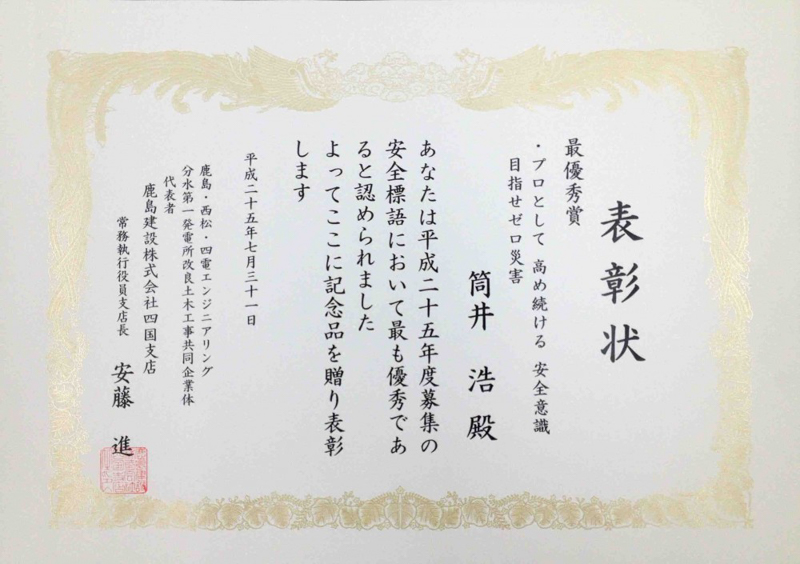 表彰状
最優秀賞
・プロとして 高め続ける 安全意識
目指せゼロ災害
筒井 浩 殿
あなたは平成二十五年度募集の
安全標語において最も優秀であ
ると認められました
よってここに記念品を贈り表彰
します
平成二十五年七月三十一日
鹿島・西松・四電エンジニアリング
分水第一発電所改良土木工事共同企業体
代表者
鹿島建設株式会社四国支店
常務執行役員支店長 安藤 進